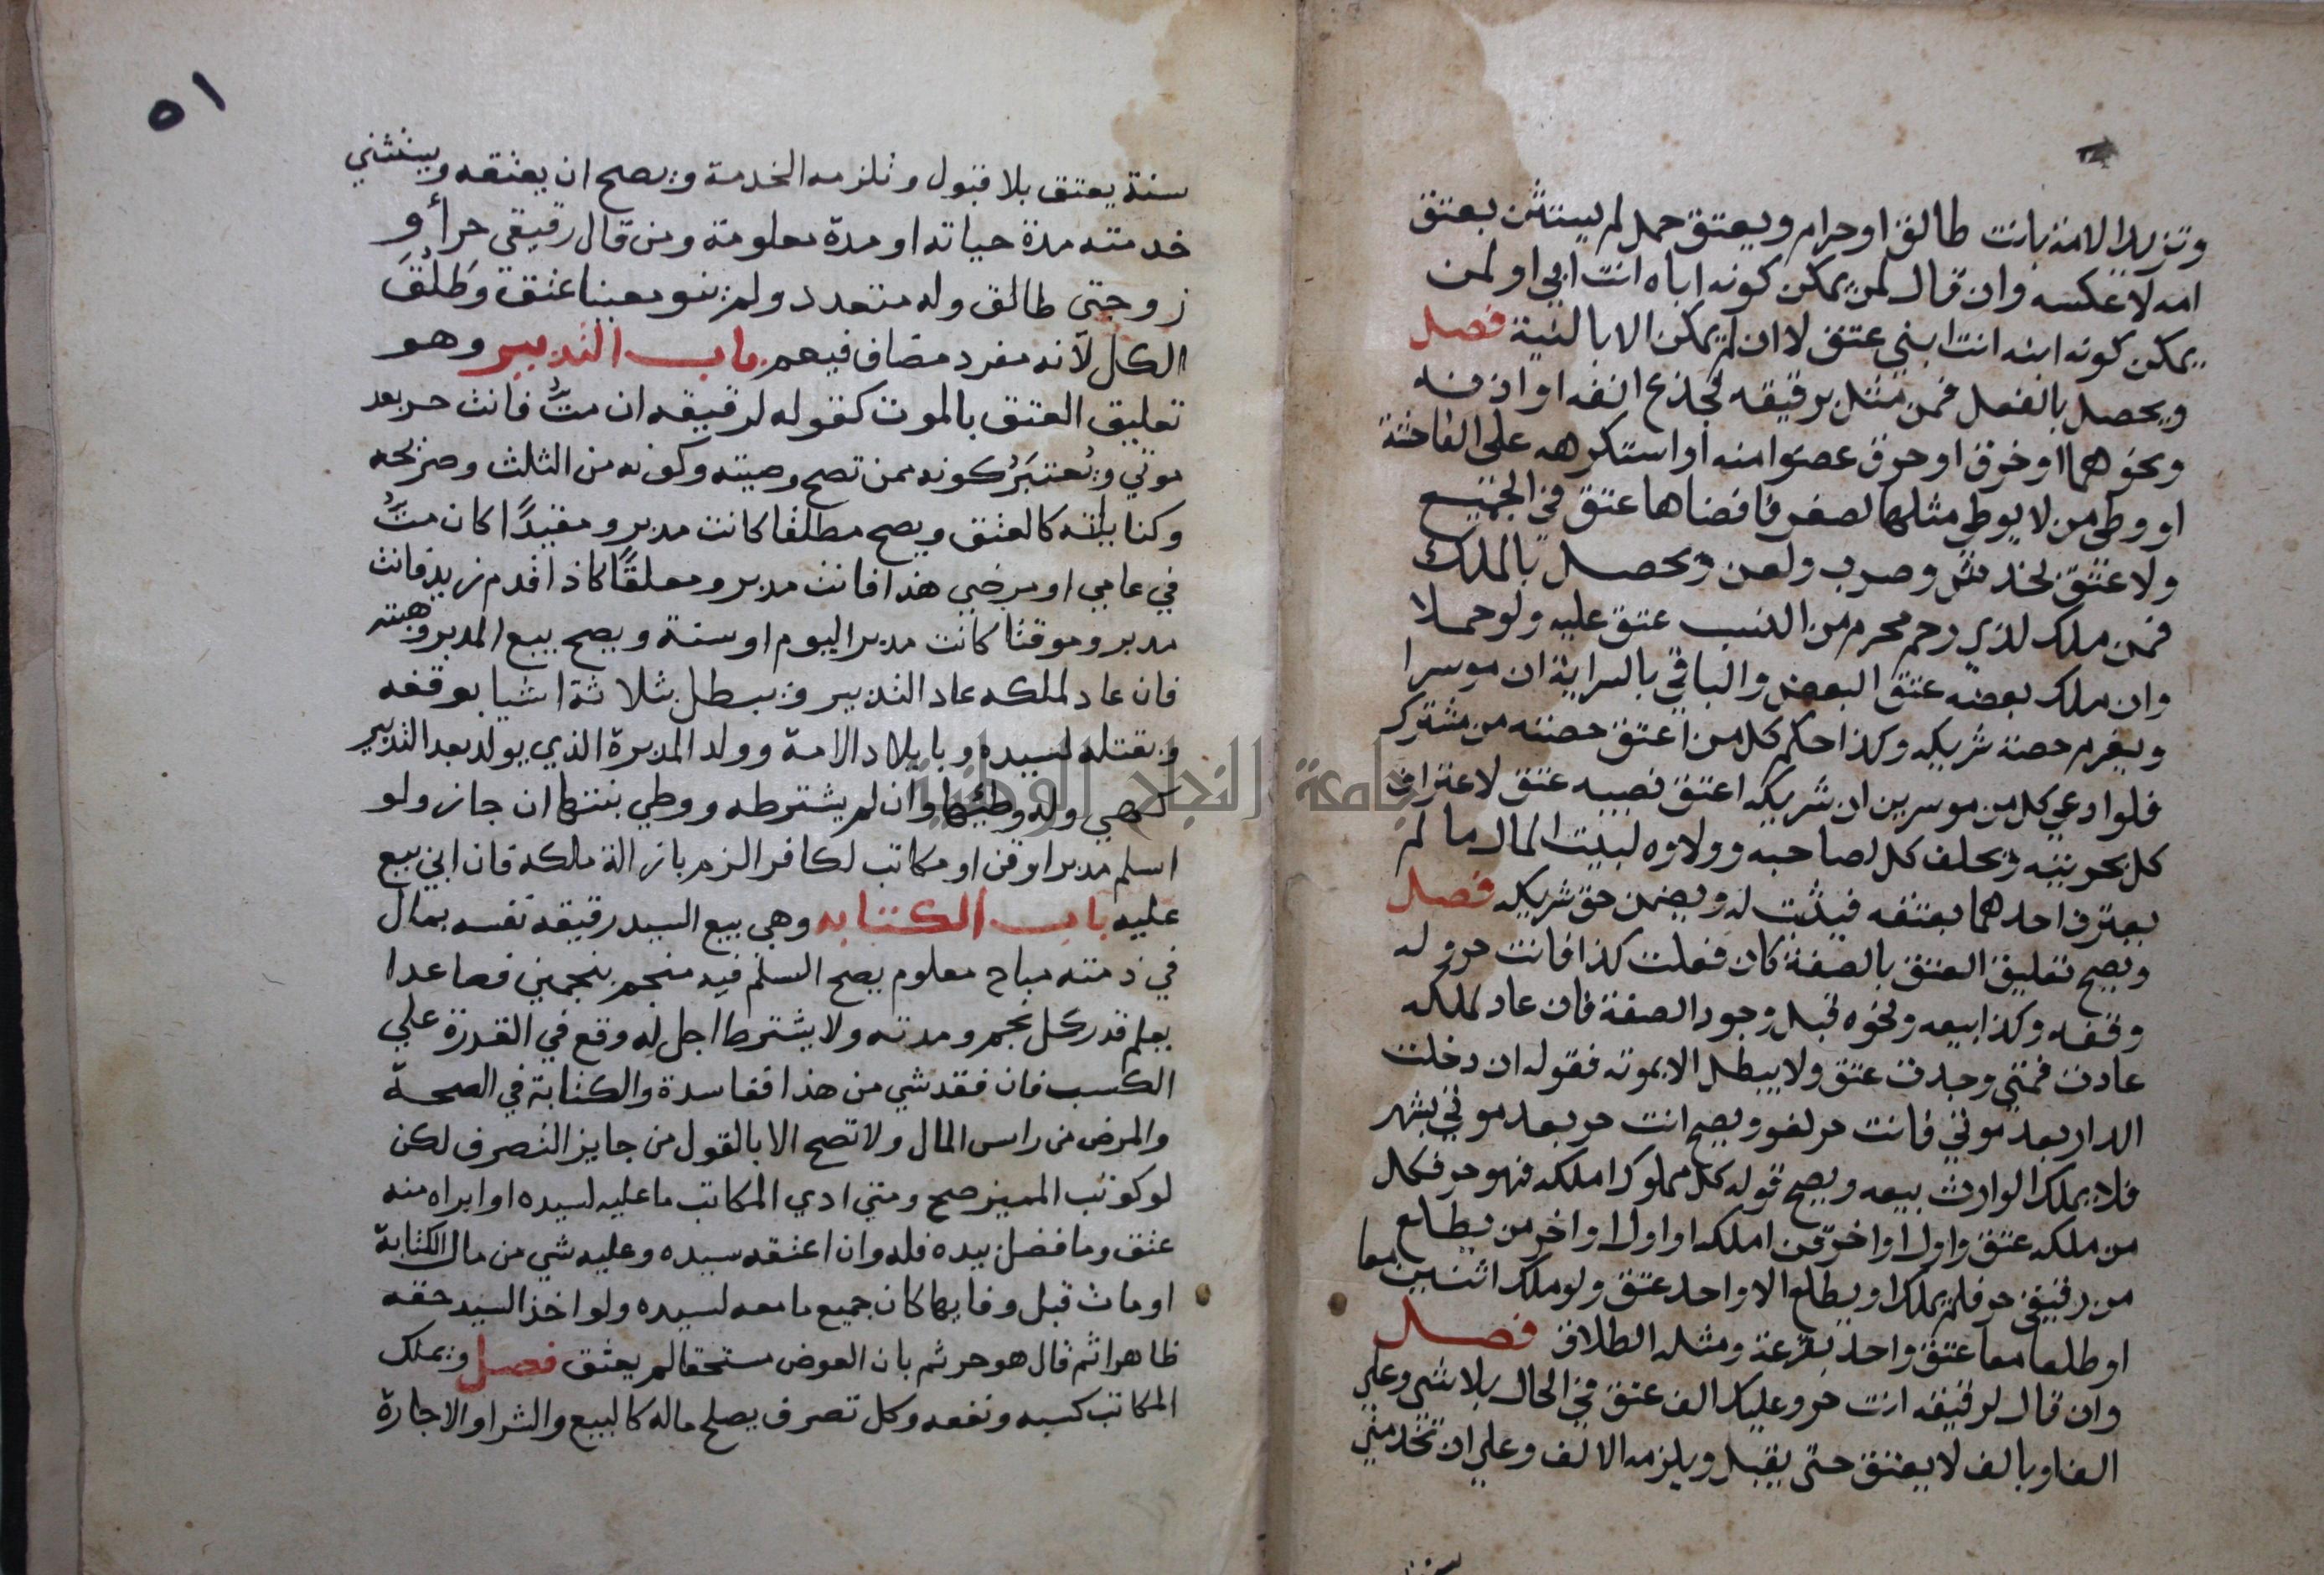 وتزيد الامة بانت طالق او حرام ويعتق حمل لم يستثن بعتق
امه لا عكسه وان قال لمن يمكن كونه اباه انت ابي او لمن
يمكن كونه ابنه انت ابني عتق لا ان لم يمكن الا بالنية فصل
ويحصل بالفعل فمن مثل برقيقه فجذع انفه او اذنه
ونحوهما او خرق او حرق عضوا منه او استكرهه على الفاحشة
او وطي من لا يوطي مثلها لصغر فافضاها عتق في الجميع
ولا عتق بخدش وضرب ولعن ويحصل بالملك
فمن ملك لذي رحم محرم من النسب عتق عليه ولو حملا
وان ملك بعضه عتق البعض والباقي بالسراية ان موسرا
ويغرم حصة شريكه وكذا حكم كل من اعتق حصته من مشترك
فلو ادعي كل من موسرين ان شريكه اعتق نصيبه عتق لاعتراف
كل بحريته ويحلف كل لصاحبه وولاوه لبيت المال ما لم
يعترف احدهما بعتقه فيثبت له ويضمن حق شريكه فصل
ويصح تعليق العتق بالصفة كان فعلت كذا فانت حر وله
وقفه وكذا بيعه ونحوه قبل وجود الصفة فان عاد لملكه
عادت فمتي وجدت عتق ولا يبطل الا بموته فقوله ان دخلت
الدار بعد موتي فانت حر لغو ويصح انت حر بعد موتي بشهر
فلا يملك الوارث بيعه ويصح قوله كل مملوك املكه فهو حر فكل
من ملكه عتق واول او اخر قن املكه او اول او اخر من يطلع
من رقيقي حر فلم يملك او يطلع الا واحد عتق ولو ملك اثنين معا
او طلعا معا عتق واحد بقرعة ومثله الطلاق فصل
وان قال لرقيقه انت حر وعليك الف عتق في الحال بلا شي وعلي
الف او بالف لا يعتق حتى يقبل ويلزمه الالف وعلي ان تخدمني
سنة
٥١
سنة يعتق بلا قبول وتلزمه الخدمة ويصح ان يعتقه ويستثني
خدمته مدة حياته او مدة معلومة ومن قال رقيقي حر أو
زوجتي طالق وله متعدد ولم ينو معينا عتق وَطَلُقَ
الكل لانه مفرد مضاف فيعم باب التدبير وهو
تعليق العتق بالموت كقوله لرقيقه ان متُّ فانت حر بعد
موتي ويُعتبَرُ كونه ممن تصح وصيته وكونه من الثلث وصريحه
وكنايته كالعتق ويصح مطلقا كانت مدبر ومقيدًا كان متُّ
في عامي او مرضي هذا فانت مدبر ومعلقًا كاذا قدم زيد فانت
مدبر وموقتا كانت مدبر اليوم او سنة ويصح بيع المدبر وهبته
فان عاد لملكه عاد التدبير ويبطل بثلاثة اشيا بوقفه
وبقتله لسيده وبايلاد الامة وولد المدبرة الذي يولد بعد التدبير
كهي وله وطيها وان لم يشترطه ووطي بنتها ان جاز ولو
اسلم مدبر او قن او مكاتب لكافر الزم بازالة ملكه فان ابي بيع
عليه باب الكتابه وهي بيع السيد رقيقه نفسه بمال
في ذمته مباح معلوم يصح السلم فيه منجم بنجمين فصاعدا
يعلم قدر كل نجم ومدته ولا يشترط اجل له وقع في القدرة علي
الكسب فان فقد شي من هذا ففاسدة والكتابة في الصحة
والمرض من راس المال ولا تصح الا بالقول من جايز التصرف لكن
لو كوتب المميز صح ومتي ادي المكاتب ما عليه لسيده او ابراه منه
عتق وما فضل بيده فله وان اعتقه سيده وعليه شي من مال الكتابة
او مات قبل وفايها كان جميع ما معه لسيده ولو اخذ السيد حقه
ظاهرا ثم قال هو حر ثم بان العوض مستحقا لم يعتق فصل ويملك
المكاتب كسبه ونفعه وكل تصرف يصلح ماله كالبيع والشرا والاجارة
جامعة النجاح الوطنية